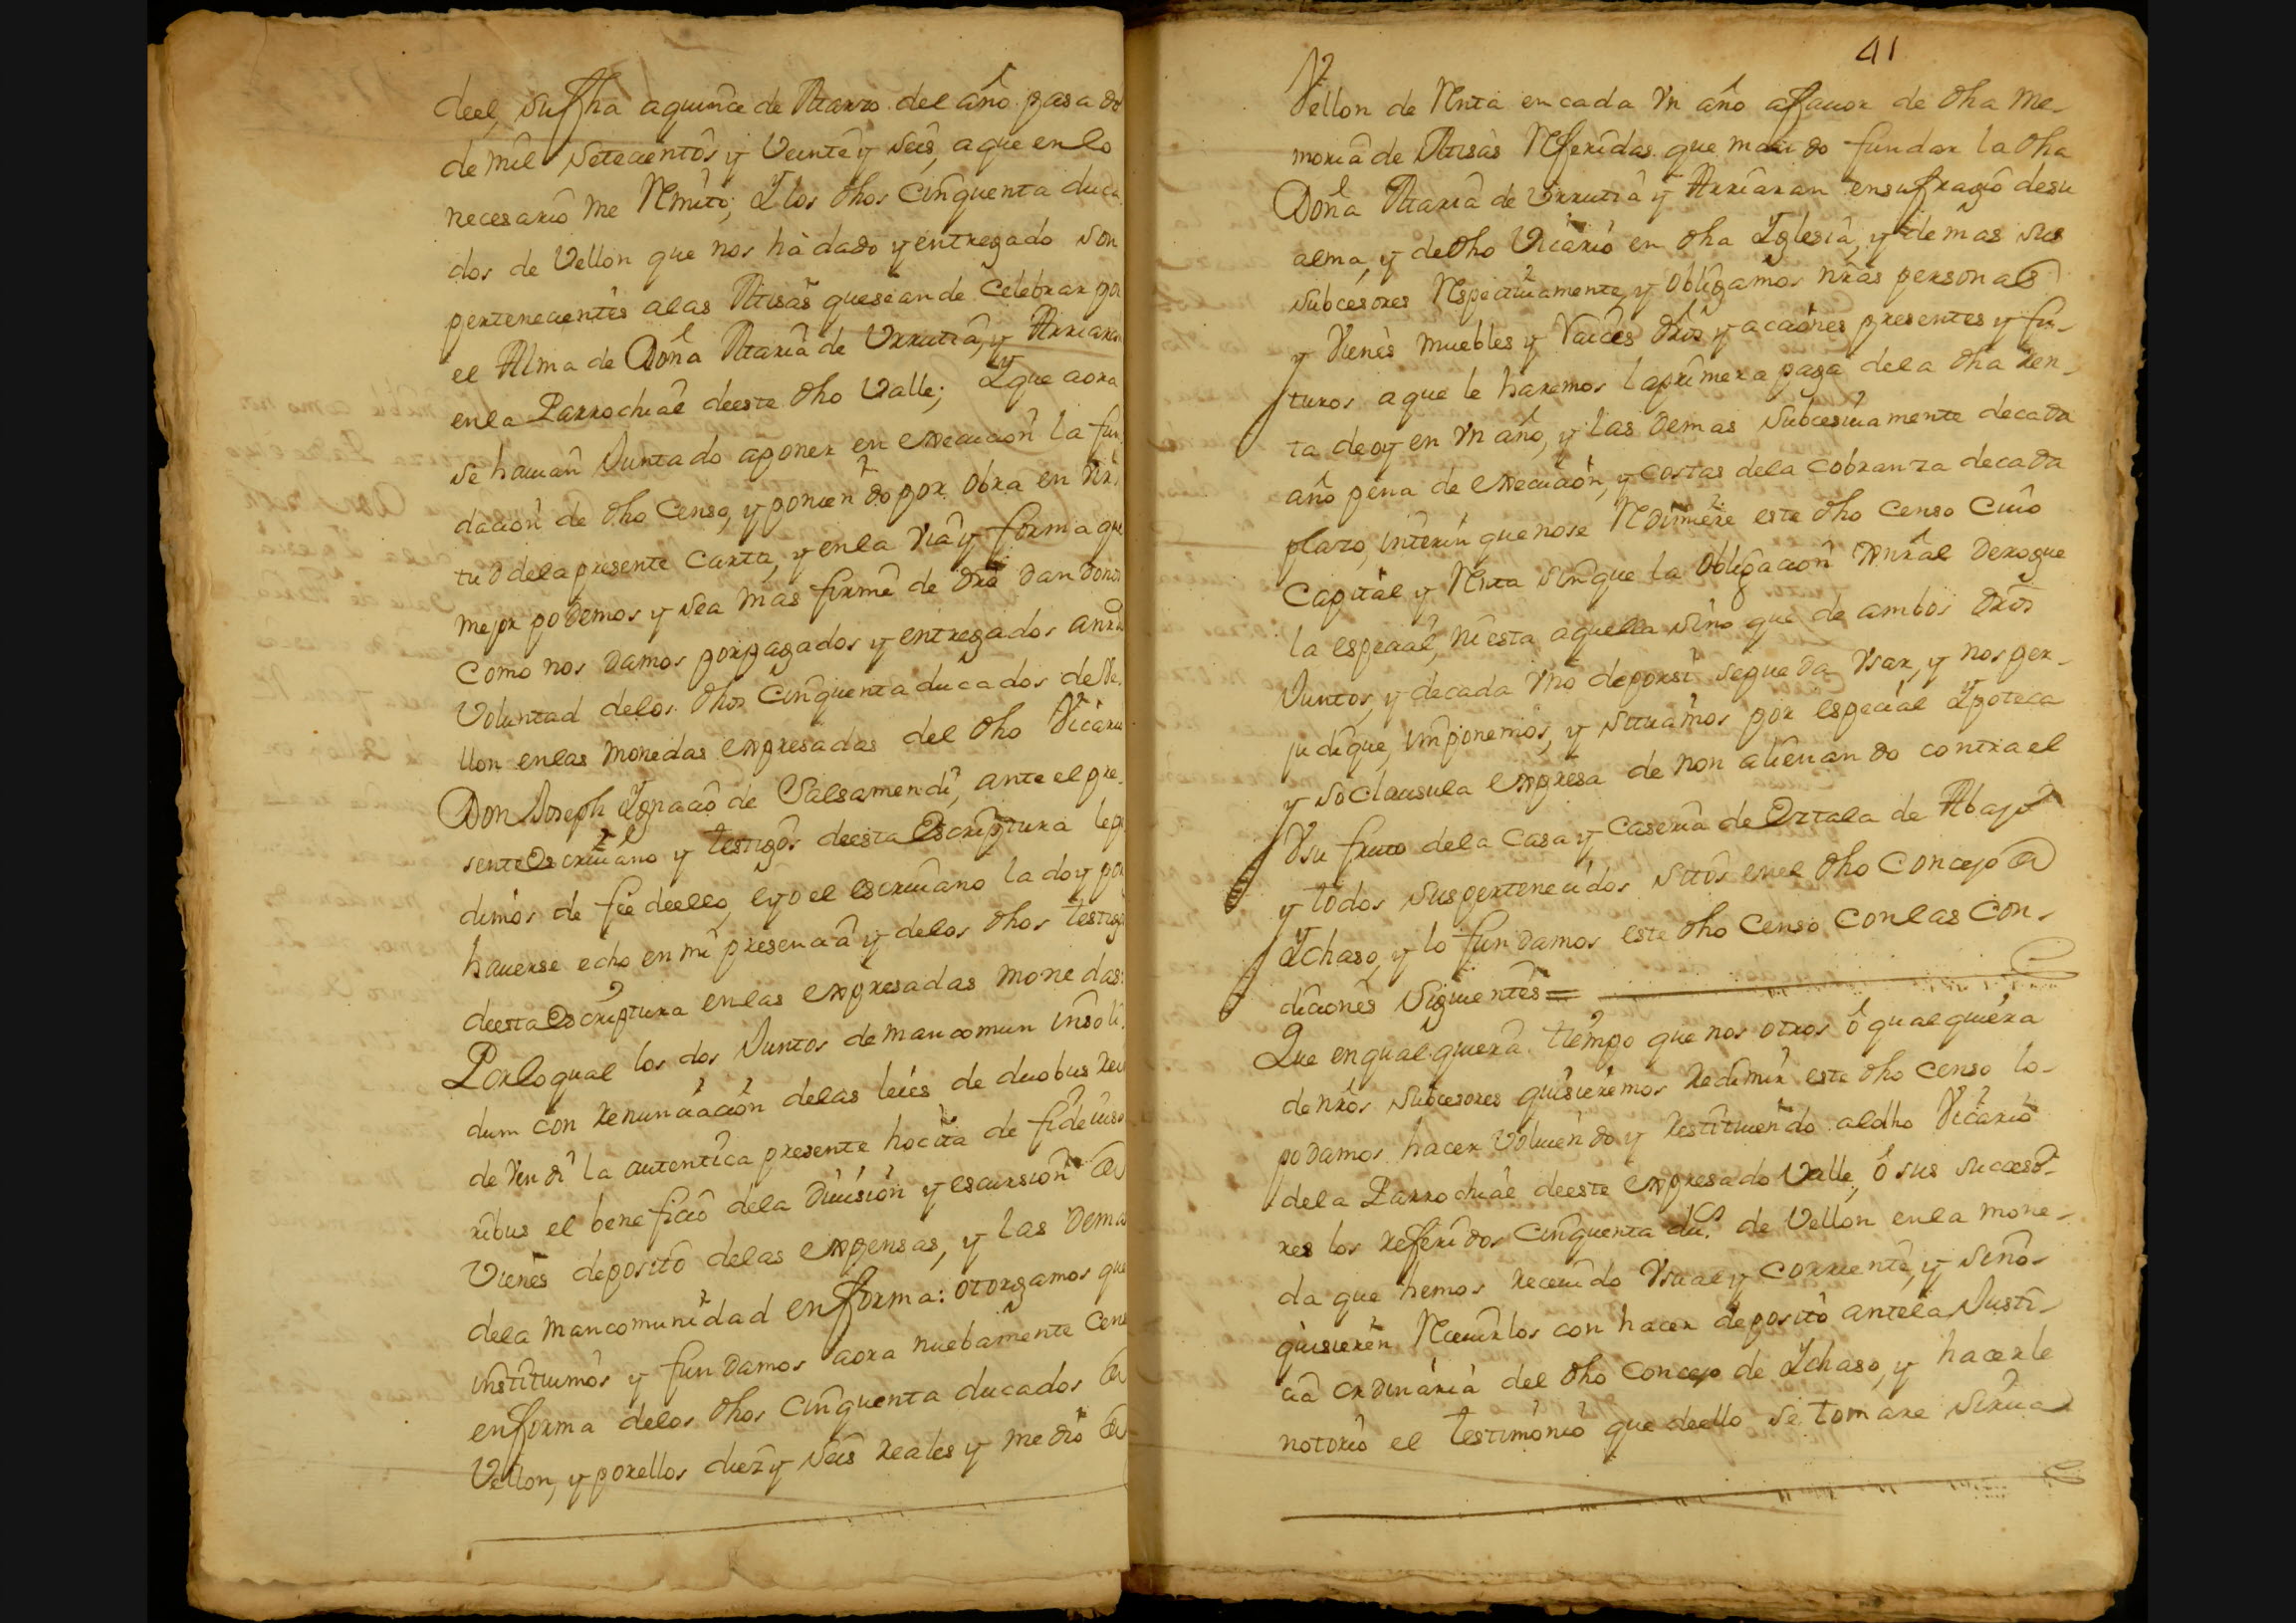 deel, su fha a quince de Marzo del año pasado
de mil setecientos y Veinte y seis, a que en lo
necesario me Rmito; Y los dhos Cinquenta duca
dos de Vellon que nos hà dado y entregado son
pertenecientes a las Missas que se an de Celebrar por
el Alma de Doña Maria de Urrutia, y Arriaran
en la Parrochial de este dho Valle; Y que aora
se havian Juntado a poner en execucion la fun
dacion de dho Censo, y poniendo por obra en Vir
tud de la presente Carta, y en la Via y forma que
mejor podemos y sea mas firme de dro dandonos
Como nos damos por pagados y entregados a nra
Voluntad de los dhos Cinquenta ducados de Ve
llon en las monedas expresadas del dho Vicario
Don Joseph Ygnacio de Salsamendi, ante el pre
sente Escrivano y testigos de esta Escriptura le pe
dimos de fee de ello, e yo el escrivano la doy por
haverse echo en mi presencia y de los dhos testigos
de esta Escriptura en las expresadas monedas:
Por lo qual los dos Juntos de mancomun insoli
dum con renunciacion de las leies de duobus reis
de vendi la autentica presente hocita de fideiuso
ribus el beneficio de la Division y escursion de
Vienes deposito de las expensas, y las demas
de la mancomunidad en forma: otorgamos que
instituimos y fundamos aora nuebamente Censo
en forma de los dhos Cinquenta ducados de
Vellon, y por ellos diez y seis reales y medio de
41
Vellon de Rnta en cada Vn año a ffavor de dha me-
moria de Missas Rferidas que mando fundar la dha
Doña Maria de Urrutia y Arriaran en sufragio de su
alma, y de dho Vicario en dha Yglesia, y demas sus
subcesores Rspectivamente, y obligamos nras personas
y Vienes muebles y Raices dros y acciones presentes y fu-
turos a que le haremos la primera paga de la dha Ren-
ta de oy en Vn año, y las demas subcesivamente de cada
año pena de execucion, y costas de la cobranza de cada
plazo, interin que no se Rdimiere este dho Censo Cuio
Capital y Rnta sin que la obligacion Gnral derogue
la especial, ni esta aquella sino que de ambos dros
Juntos, y de cada Vno de por si se pueda Vsar, y nos per-
judique, imponemos, y situamos por especial Ypoteca
y so clausula expresa de non alienando contra el
Vsu fruto de la Casa y Caseria de Oztala de Abajo
y todos sus pertenecidos sitos en el dho Concejo de
Ychaso, y lo fundamos este dho Censo Con las Con-
diciones Siguientes =
Que en qualquiera tiempo que nosotros ô qualquiera
de nros subcesores quisieremos Redimir este dho censo lo
podamos hacer Volviendo y Restituiendo al dho Vicario
de la Parrochial de este expresado Valle, ô sus succeso-
res los referidos Cinquenta dus. de Vellon en la mone-
da que hemos recevido Vsual y corriente, y sino
quisieren Rcevirlos con hacer deposito ante la Justi-
cia Ordinaria del dho Concejo de Ychaso, y hacerle
notorio el testimonio que de ello se tomare sirva